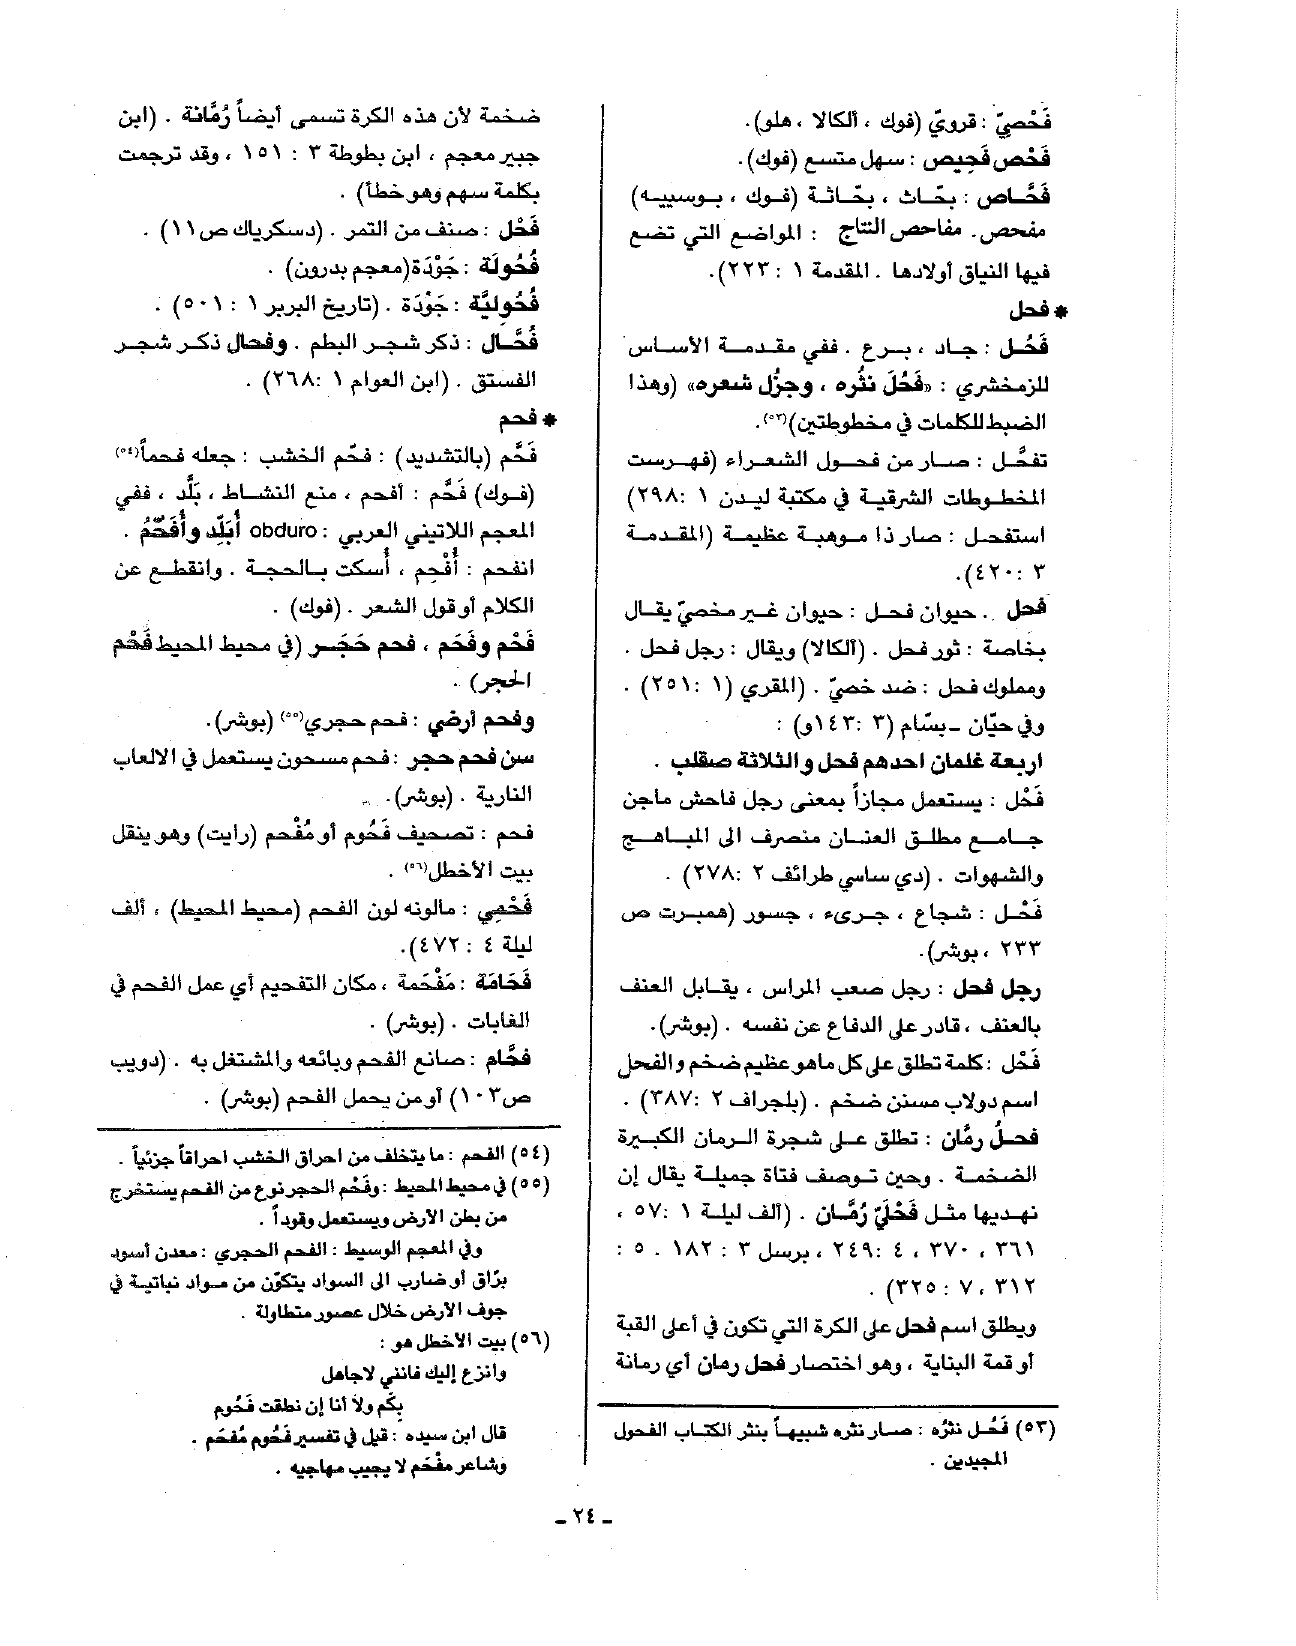 فَحْصيّ : قرويّ (فوك ، ألكالا ، هلو).
فَحْص فَحِيص : سهل متسع (فوك).
فَحَّاص : بحّاث ، بحّاثة (فوك ، بوسييه)
مفحص. مفاحص النتاج : المواضع التي تضع
فيها النياق أولادها . المقدمة ١ : ٢٢٣).
* فحل
فَحُل : جاد ، برع . ففي مقدمة الأساس
للزمخشري : «فَحُلَ نثُره ، وجزُل شعره» (وهذا
الضبط للكلمات في مخطوطتين)(٥٣).
تفحَّل : صار من فحول الشعراء (فهرست
المخطوطات الشرقية في مكتبة ليدن ١ : ٢٩٨)
استفحل : صار ذا موهبة عظيمة (المقدمة
٣ : ٤٢٠).
فحل . حيوان فحل : حيوان غير مخصيّ يقال
بخاصة : ثور فحل . (ألكالا) ويقال : رجل فحل .
ومملوك فحل : ضد خصيّ . (المقري (١ : ٢٥١) .
وفي حيّان - بسّام (٣ : ١٤٣و) :
اربعة غلمان احدهم فحل والثلاثة صقلب .
فَحْل : يستعمل مجازاً بمعنى رجل فاحش ماجن
جامع مطلق العنان منصرف الى المباهج
والشهوات . (دي ساسي طرائف ٢ : ٢٧٨) .
فَحْل : شجاع ، جريء ، جسور (همبرت ص
٢٣٣ ، بوشر).
رجل فحل : رجل صعب المراس ، يقابل العنف
بالعنف ، قادر على الدفاع عن نفسه . (بوشر).
فَحْل : كلمة تطلق على كل ماهو عظيم ضخم والفحل
اسم دولاب مسنن ضخم . (بلجراف ٢ : ٣٨٧) .
فحلُ رمَّان : تطلق على شجرة الرمان الكبيرة
الضخمة . وحين توصف فتاة جميلة يقال إن
نهديها مثل فَحْلَيْ رُمَّان . (ألف ليلة ١ : ٥٧ ،
٣٦١ ، ٣٧٠ ، ٤ : ٢٤٩ ، برسل ٣ : ١٨٢ . ٥ :
٣١٢ ، ٧ : ٣٢٥) .
ويطلق اسم فحل على الكرة التي تكون في أعلى القبة
أو قمة البناية ، وهو اختصار فحل رمان أي رمانة
(٥٣) فَحُل نثرُه : صار نثره شبيهاً بنثر الكتاب الفحول
المجيدين .
ضخمة لأن هذه الكرة تسمى أيضاً رُمَّانة . (ابن
جبير معجم ، ابن بطوطة ٣ : ١٥١ ، وقد ترجمت
بكلمة سهم وهو خطأ) .
فَحْل : صنف من التمر . (دسكرياك ص١١) .
فُحُولَة : جَوْدَة (معجم بدرون) .
فُحُوليَّة : جَوْدَة . (تاريخ البربر ١ : ٥٠١) .
فُحَّال : ذكر شجر البطم . وفحال ذكر شجر
الفستق . (ابن العوام ١ : ٢٦٨) .
* فحم
فَحَّم (بالتشديد) : فحّم الخشب : جعله فحماً(٥٤)
(فوك) فَحَّم : أفحم ، منع النشاط ، بَلَّد ، ففي
المعجم اللاتيني العربي : obduro أُبَلِّد وأُفَحِّمُ .
انفحم : أُفْحِم ، أُسكت بالحجة . وانقطع عن
الكلام أو قول الشعر . (فوك) .
فَحْم وفَحَم ، فحم حَجَر (في محيط المحيط فَحْم
الحجر) .
وفحم أرضي : فحم حجري(٥٥) (بوشر).
سن فحم حجر : فحم مسحون يستعمل في الالعاب
النارية . (بوشر).
فحم : تصحيف فَحُوم أو مُفْحم (رايت) وهو ينقل
بيت الأخطل(٥٦) .
فَحْمِي : مالونه لون الفحم (محيط المحيط) ، ألف
ليلة ٤ : ٤٧٢).
فَحَامَة : مَفْحَمة ، مكان التفحيم أي عمل الفحم في
الغابات . (بوشر) .
فحَّام : صانع الفحم وبائعه والمشتغل به . (دويب
ص١٠٣) أو من يحمل الفحم (بوشر) .
(٥٤) الفحم : ما يتخلف من احراق الخشب احراقاً جزئياً .
(٥٥) في محيط المحيط : وفَحْم الحجر نوع من الفحم يستخرج
من بطن الأرض ويستعمل وقوداً .
وفي المعجم الوسيط : الفحم الحجري : معدن أسود
برّاق أو ضارب الى السواد يتكوّن من مواد نباتية في
جوف الأرض خلال عصور متطاولة .
(٥٦) بيت الأخطل هو :
وانزع إليك فانني لا جاهل
بكم ولا أنا إن نطقت فَحُوم
قال ابن سيده : قيل في تفسير فَحُوم مُفْحَم .
وشاعر مفْحَم لا يجيب مهاجيه .
ـ ٢٤ ـ